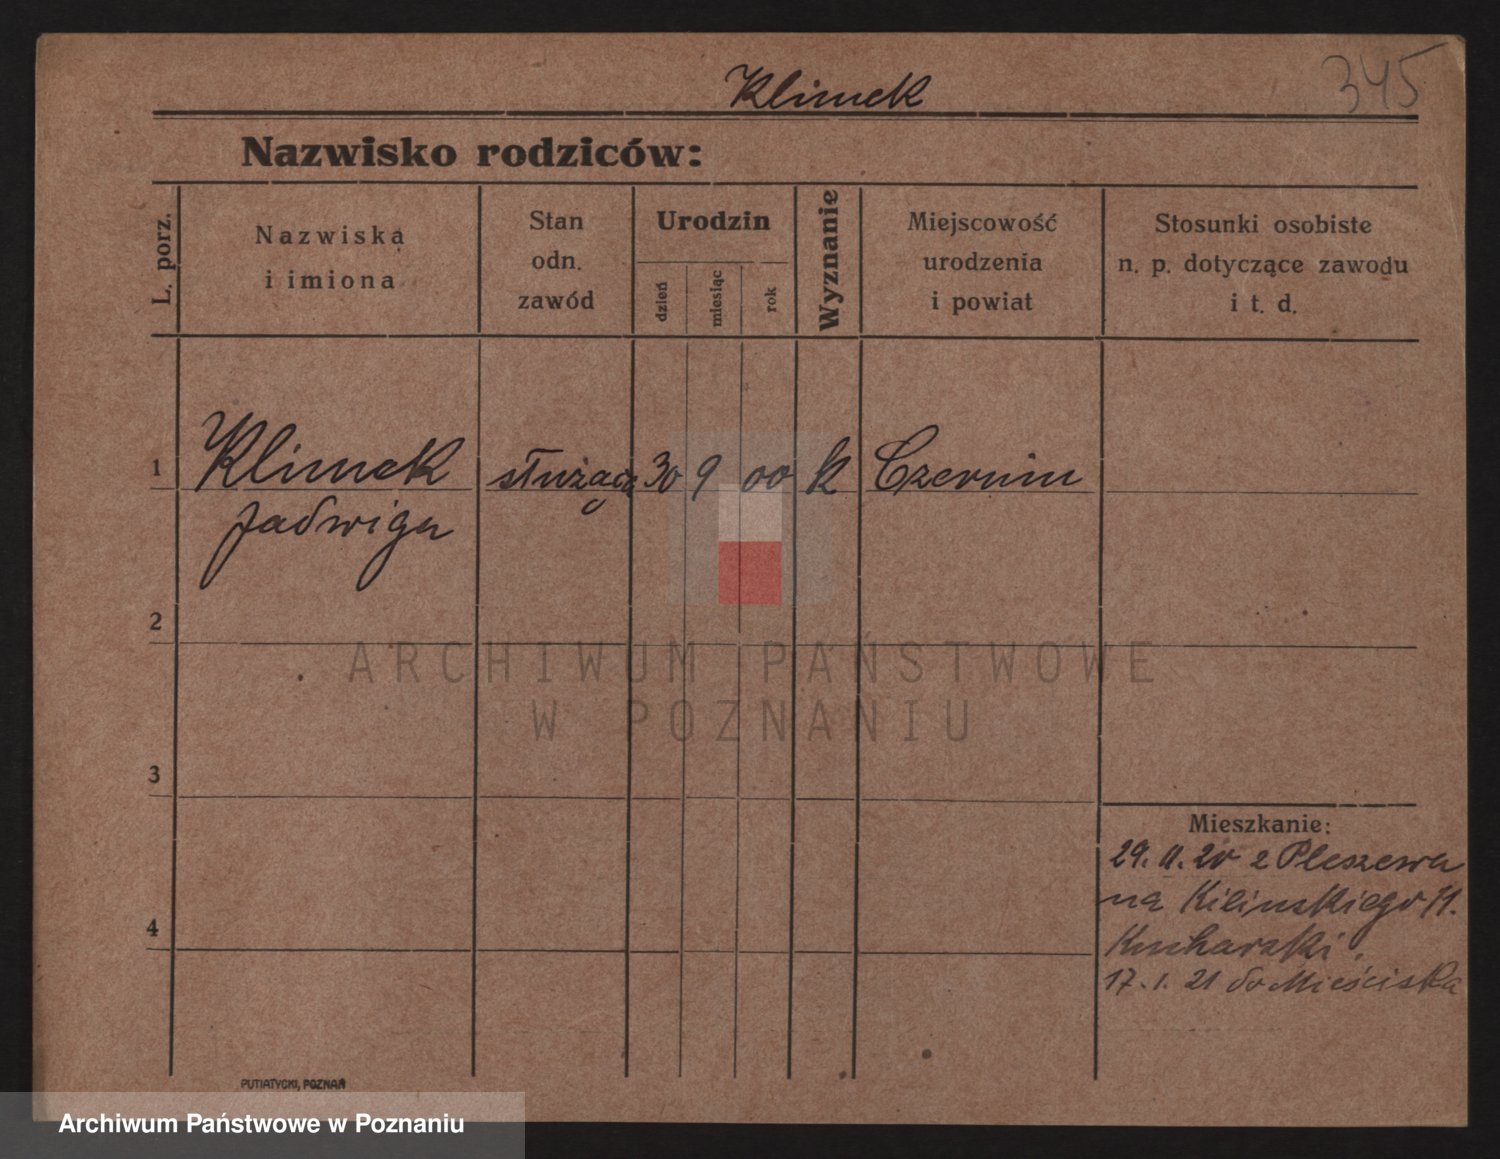 Klimek
345
Nazwisko rodziców:
L. porz.
Nazwiska
i imiona
Stan
odn.
zawód
Urodzin
dzień
miesiąc
rok
Wyznanie
Miejscowość
urodzenia
i powiat
Stosunki osobiste
n. p. dotyczące zawodu
i t. d.
1
Klimek
Jadwiga
służąca
30
9
00
k
Czermin
2
ARCHIWUM PAŃSTWOWE
W POZNANIU
3
Mieszkanie:
29. 11. 20 z Pleszewa
na Kilinskiego 11.
Kucharski.
17. 1. 21 do Mieściska
4
PUTIATYCKI, POZNAŃ
Archiwum Państwowe w Poznaniu